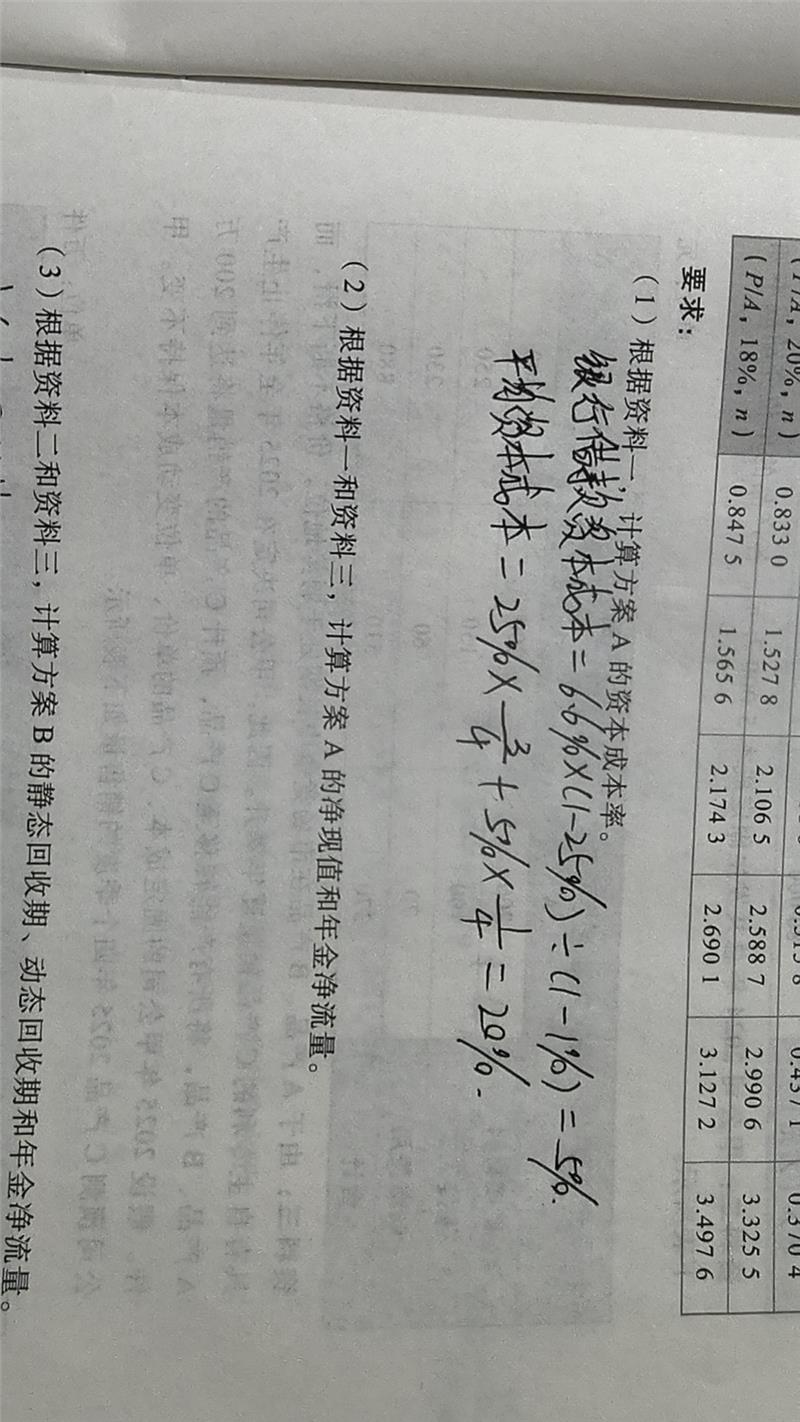 (P/A, 20%, n) 0.833 0 1.527 8 2.106 5 2.588 7 2.990 6 3.325 5
(P/A, 18%, n) 0.847 5 1.565 6 2.174 3 2.690 1 3.127 2 3.497 6
要求：
(1) 根据资料一，计算方案 A 的资本成本率。
银行借款资本成本 = 6.6%×(1-25%)÷(1-1%) = 5%.
平均资本成本 = 25%×3/4+5%×1/4 = 20%.
(2) 根据资料一和资料三，计算方案 A 的净现值和年金净流量。
(3) 根据资料二和资料三，计算方案 B 的静态回收期、动态回收期和年金净流量。